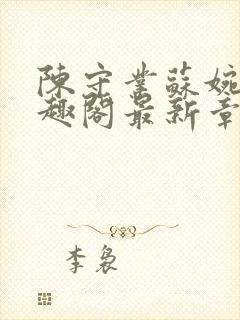 陳守業蘇婉
趣閣最新章
李裊